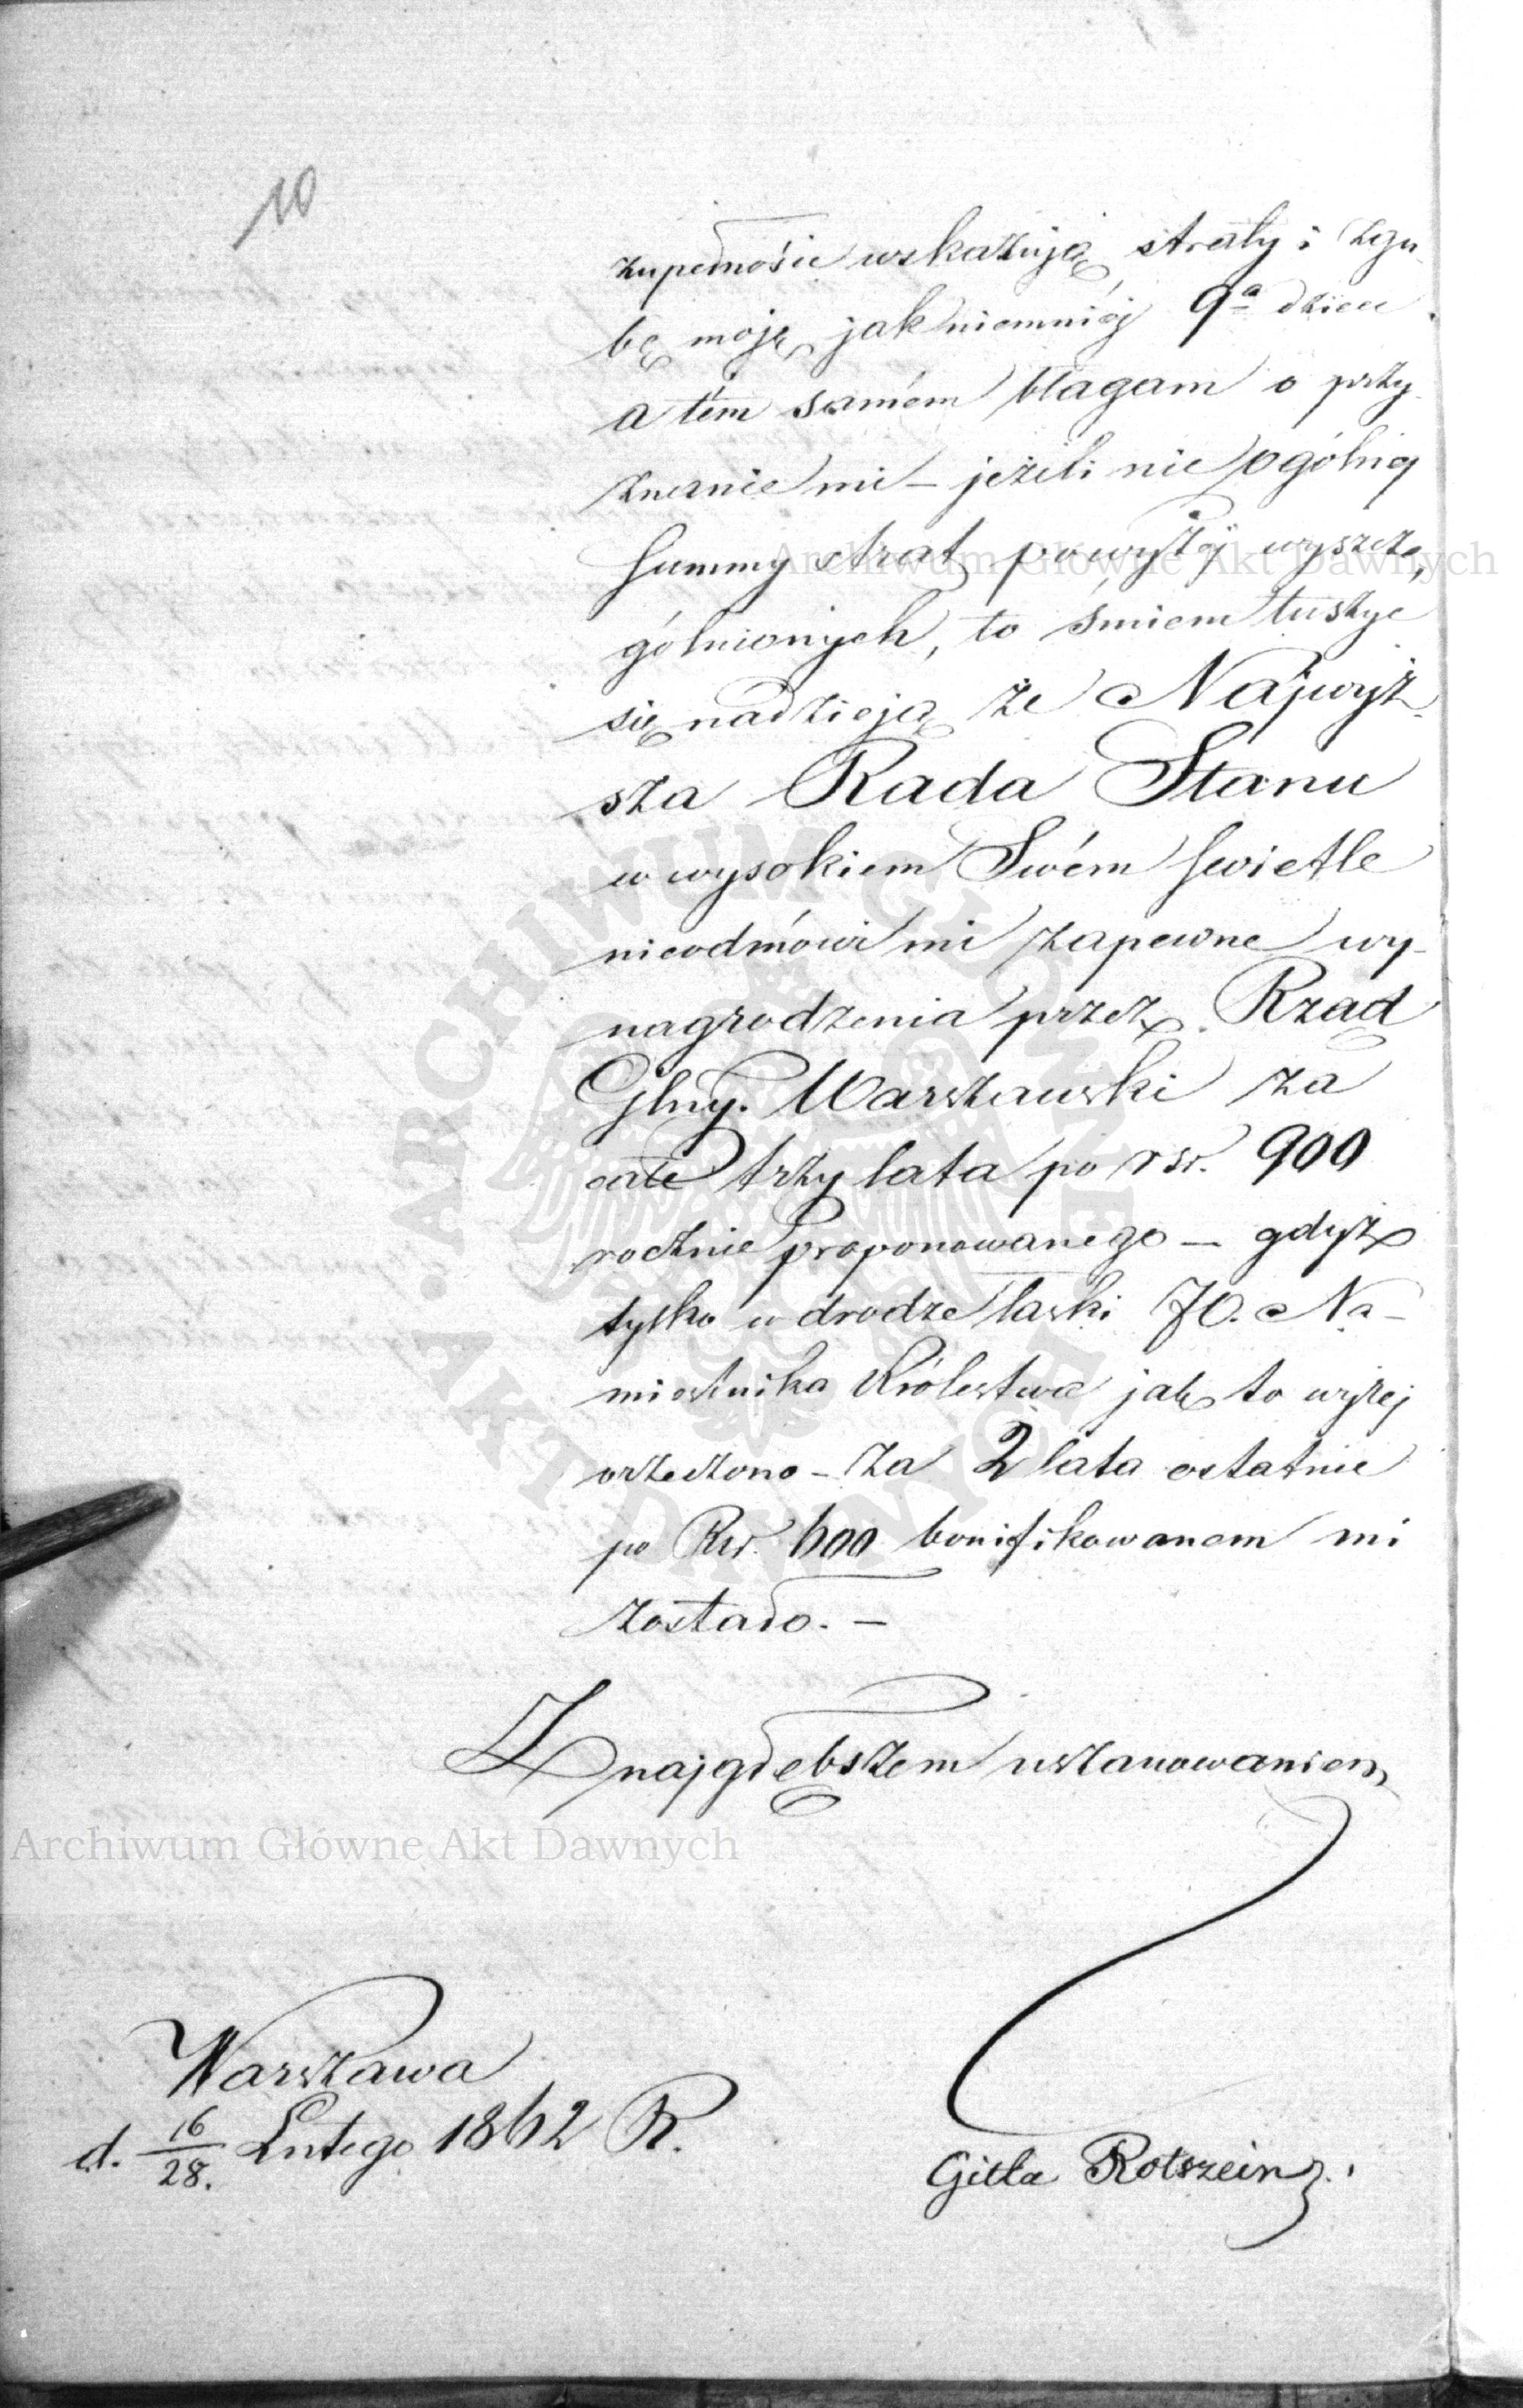 10
zupełności wskazują straty i zgu-
bę moję, jak niemniéj 9a dzieci
a tém samém błagam o przy-
znanie mi – jeżeli nie ogólnéj
summy strat powyżéj wyszcze-
gólnionych, to śmiem tuszyć
się nadzieją że Najwyż-
sza Rada Stanu
w wysokiem Swém świetle
nieodmówi mi zapewne wy-
nagrodzenia przez Rząd
Glny. Warszawski za
całe trzy lata po rsr. 900
rocznie proponowanego – gdyż
tylko w drodze łaski JO. Na-
miestnika Królestwa jak to wyżej
orzeczono – za 2 lata ostatnie
po Rsr. 600 bonifikowanem mi
zostało. –
Z najgłębszem uszanowaniem
Warszawa
d. 16/28. Lutego 1862 R.
Gitla Rotszein
Archiwum Główne Akt Dawnych
Archiwum Główne Akt Dawnych
ARCHIWUM GŁÓWNE AKT DAWNYCH